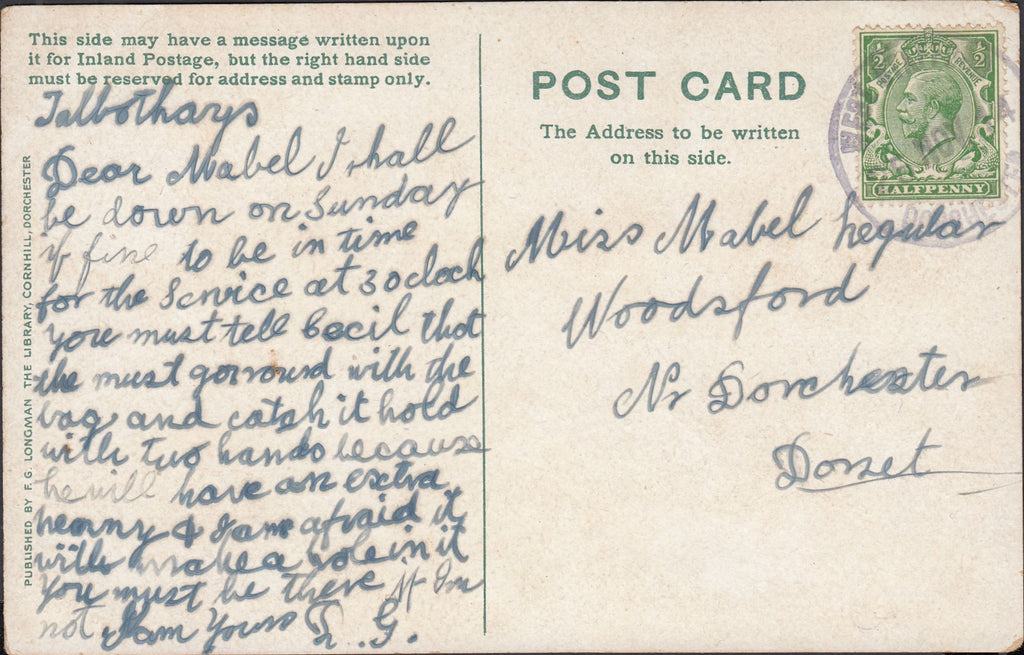 This side may have a message written upon
it for Inland Postage, but the right hand side
must be reserved for address and stamp only.
Talbothays
Dear Mabel I shall
be down on Sunday
if fine to be in time
for the Service at 3 oclock
you must tell Cecil that
he must goround with the
bag and catch it hold
with two hands because
he will have an extra
penny & I am afraid it
will make a hole in it
You must be there if Im
not I am Yours G.
PUBLISHED BY F. G. LONGMAN THE LIBRARY, CORNHILL, DORCHESTER
POST CARD
The Address to be written
on this side.
½ ½
POSTAGE REVENUE
HALFPENNY
Miss Mabel Legular
Woodsford
Nr Dorchester
Dorset